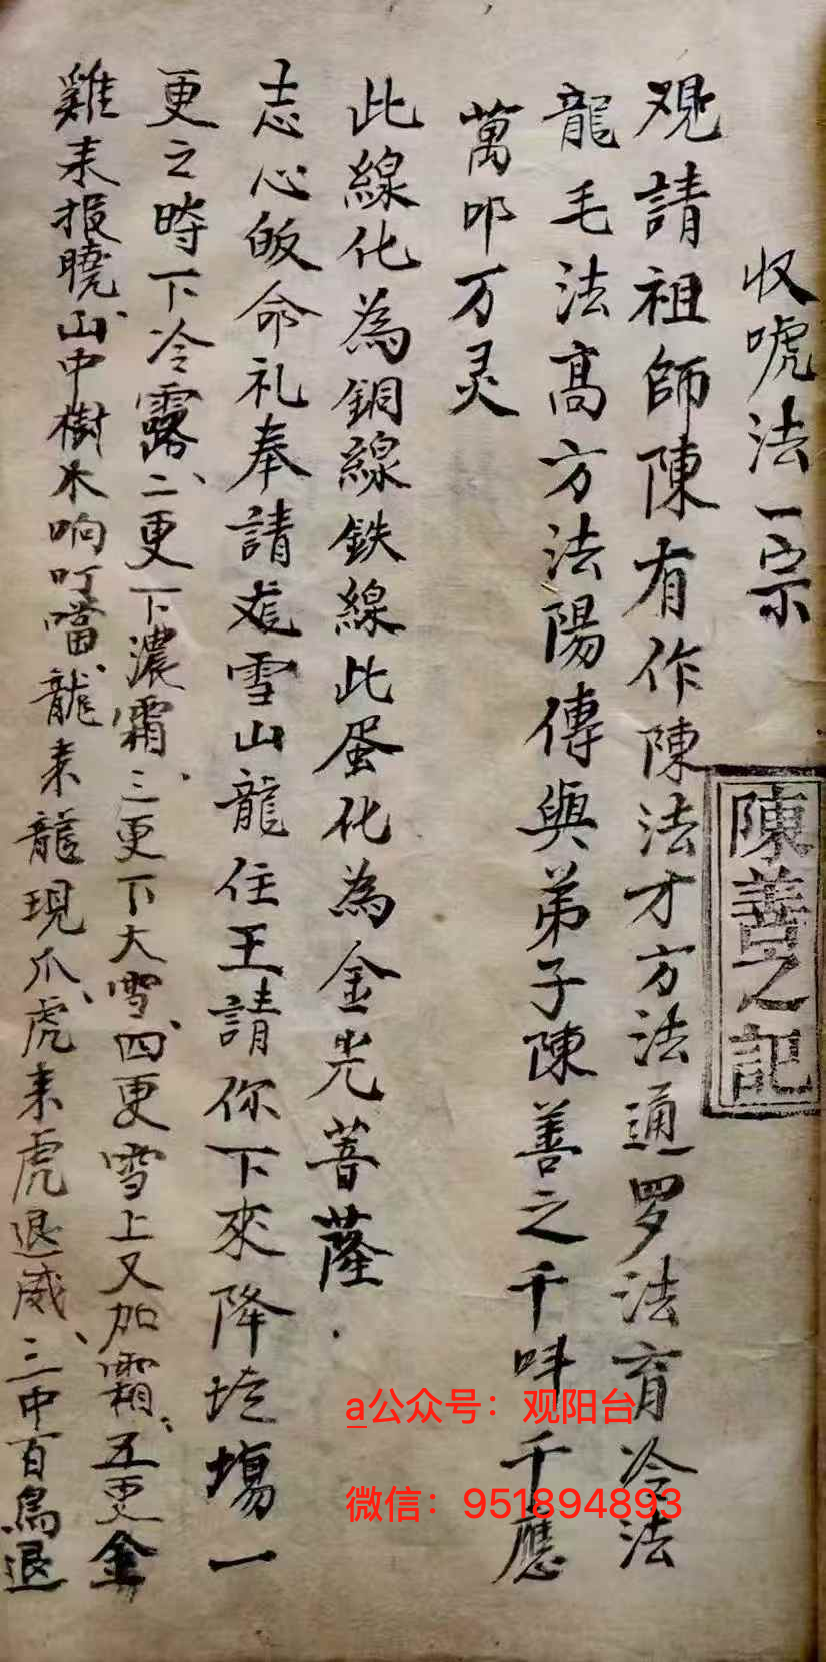 收唬法一宗
陳善之記
观請祖師陳有作陳法才方法通罗法育冷法
龍毛法高方法陽傳與弟子陳善之千呌千應
萬叩万灵
此線化為銅線鉄線此蛋化為金光菩薩
志心皈命礼奉請雪山龍住王請你下來降坛場一
更之時下冷露、二更下濃霜、三更下大雪、四更雪上又加霜、五更金
雞来报曉、山中樹木响叮噹、龍来龍現爪、虎来虎退威、三中百鳥退
a公众号：观阳台
微信：951894893